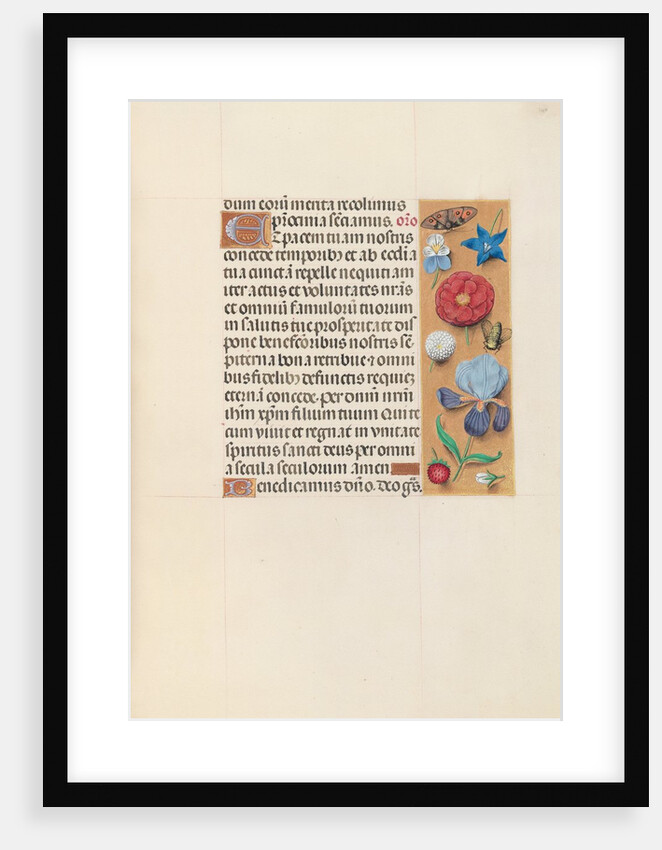 dum eorū merita recolimus
p̄rocinia sēciamus. or̄o
Et pacem tuam nostris
concede temporib₉ et ab eccl̄ia
tua cunctā repelle nequitiam
iter actus et voluntates nr̄as
et omniū famulorū tuorum
in salutis tue prosperitate dis
pone benefc̄oribus nostris sē-
piterna bona retribue ⁊ omni
bus fidelib₉ defunctis requiē
eternā concede. per dn̄m nr̄m
ih̄m xp̄m filium tuum Qui te
cum vivit et regnat in unitate
spiritus sancti deus per omnia
secula seculorum amen
Benedicamus dn̄o. deo gr̄s.